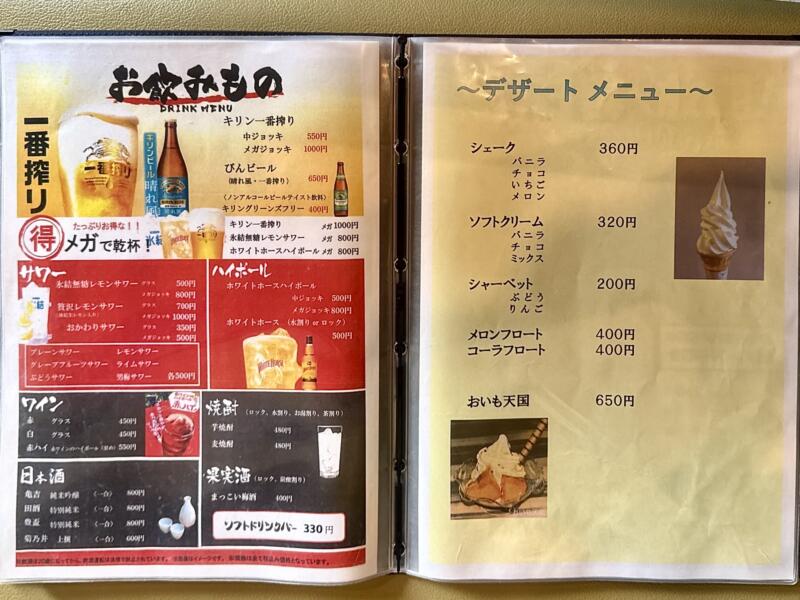 お飲みもの
DRINK MENU
一番搾り
一番搾り
キリンビール
晴れ風
キリン一番搾り
中ジョッキ 550円
メガジョッキ 1000円
びんビール
(晴れ風・一番搾り) 650円
(ノンアルコールビールテイスト飲料)
キリングリーンズフリー 400円
得
たっぷりお得な!!
メガで乾杯!
キリン一番搾り メガ 1000円
氷結無糖レモンサワー メガ 800円
ホワイトホースハイボール メガ 800円
サワー
氷結無糖レモンサワー グラス 500円
メガジョッキ 800円
贅沢レモンサワー グラス 700円
メガジョッキ 1000円
おかわりサワー グラス 350円
メガジョッキ 500円
プレーンサワー レモンサワー
グレープフルーツサワー ライムサワー
ぶどうサワー 男梅サワー 各500円
ハイボール
ホワイトホースハイボール
中ジョッキ 500円
メガジョッキ 800円
ホワイトホース (水割り or ロック)
500円
WHITE HORSE
ワイン
赤 グラス 450円
白 グラス 450円
赤ハイ 赤ワインのハイボール 550円
赤ハイ
焼酎 (ロック、水割り、お湯割り、茶割り)
芋焼酎 480円
麦焼酎 480円
日本酒
亀吉 純米吟醸 (一合) 800円
田酒 特別純米 (一合) 800円
豊盃 特別純米 (一合) 800円
菊乃井 上撰 (一合) 600円
果実酒 (ロック、炭酸割り)
まっこい梅酒 400円
ソフトドリンクバー 330円
〜デザート メニュー〜
シェーク 360円
バニラ
チョコ
いちご
メロン
ソフトクリーム 320円
バニラ
チョコ
ミックス
シャーベット 200円
ぶどう
りんご
メロンフロート 400円
コーラフロート 400円
おいも天国 650円